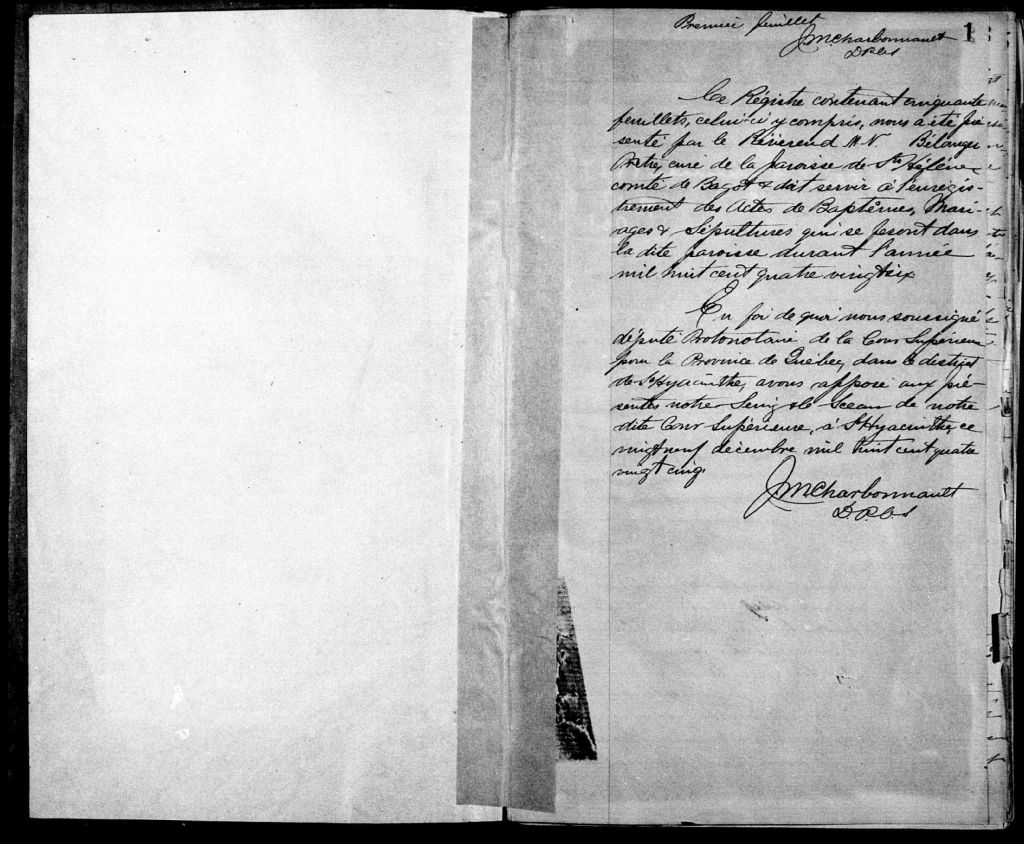 Premier feuillet
1
JMCharbonnault
D.P.C.S
Ce Régistre contenant cinquante
feuillets, celui-ci y compris, nous a été pré
senté par le Révérend N. Bélanger
Ptre, curé de la paroisse de Ste Hélène
comté de Bagot & doit servir à l'enrégis-
trement des Actes de Baptême, Mari-
ages & Sépultures qui se feront dans
la dite paroisse durant l'année
mil huit cent quatre vingt six
En foi de quoi nous soussigné
député Protonotaire de la Cour Supérieure
pour la Province de Québec, dans le district
de St Hyacinthe, avons apposé aux pré-
sentes notre Seing & le Sceau de notre
dite Cour Supérieure, à St Hyacinthe, ce
vingt neuf décembre mil huit cent quatre
vingt cinq.
JMCharbonnault
D.P.C.S